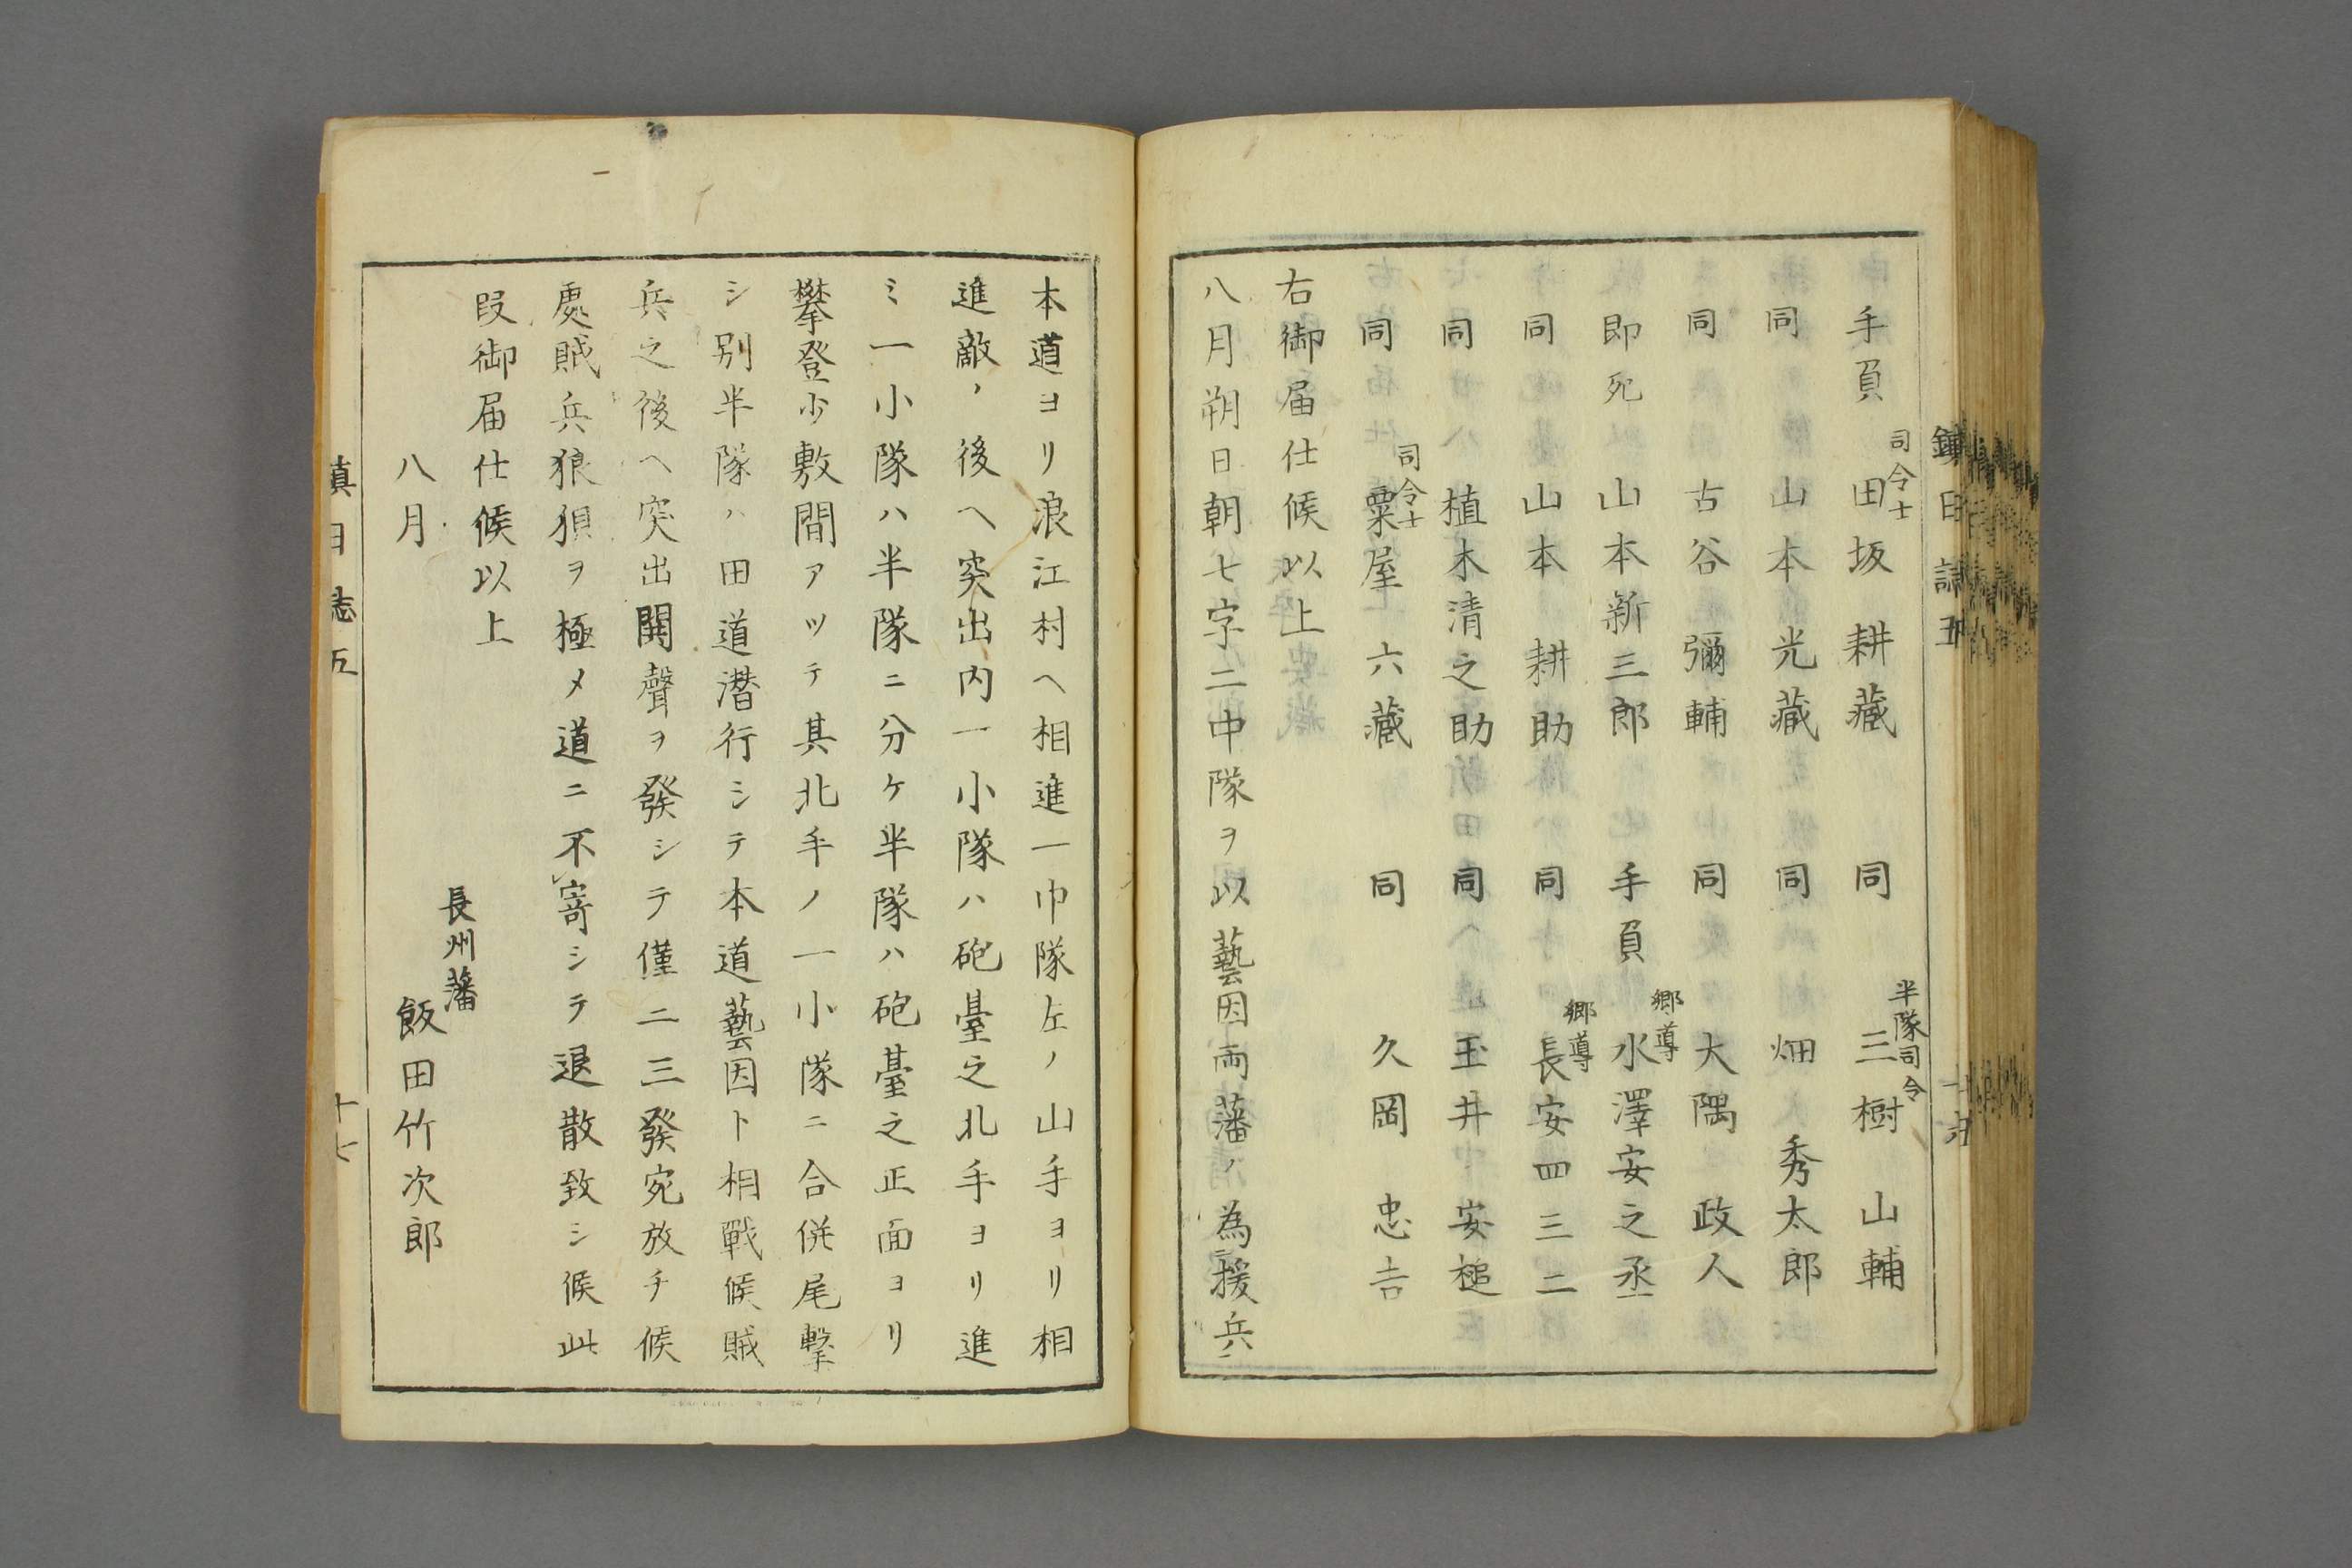 鎮日誌五
司令士
半隊司令
手負 田坂耕藏 同 三樹山輔
同 山本光藏 同 畑秀太郎
同 古谷彌輔 同 大隅政人
郷導
即死 山本新三郎 手負 水澤安之丞
郷導
同 山本耕助 同 長安四三二
同 植木清之助 同 玉井安槌
司令士
同 粟屋六藏 同 久岡忠吉
右御届仕候以上
八月朔日朝七字二中隊ヲ以藝因両藩ノ為援兵
本道ヨリ浪江村ヘ相進一中隊左ノ山手ヨリ相
進敵ノ後ヘ突出内一小隊ハ砲臺之北手ヨリ進
ミ一小隊ハ半隊ニ分ケ半隊ハ砲臺之正面ヨリ
攀登少敷間アツテ其北手ノ一小隊ニ合併尾撃
シ別半隊ハ田道潜行シテ本道藝因ト相戰候賊
兵之後ヘ突出鬨聲ヲ發シテ僅二三發宛放チ候
處賊兵狼狽ヲ極メ道ニ不寄シテ退散致シ候此
段御届仕候以上
長州藩
八月 飯田竹次郎
鎮日志五
十七